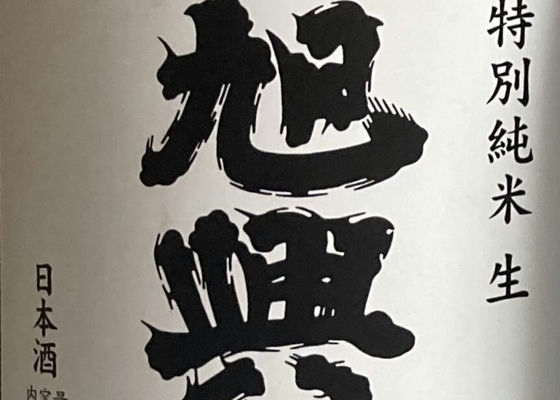 特別純米 生
旭興
日本酒
内容量